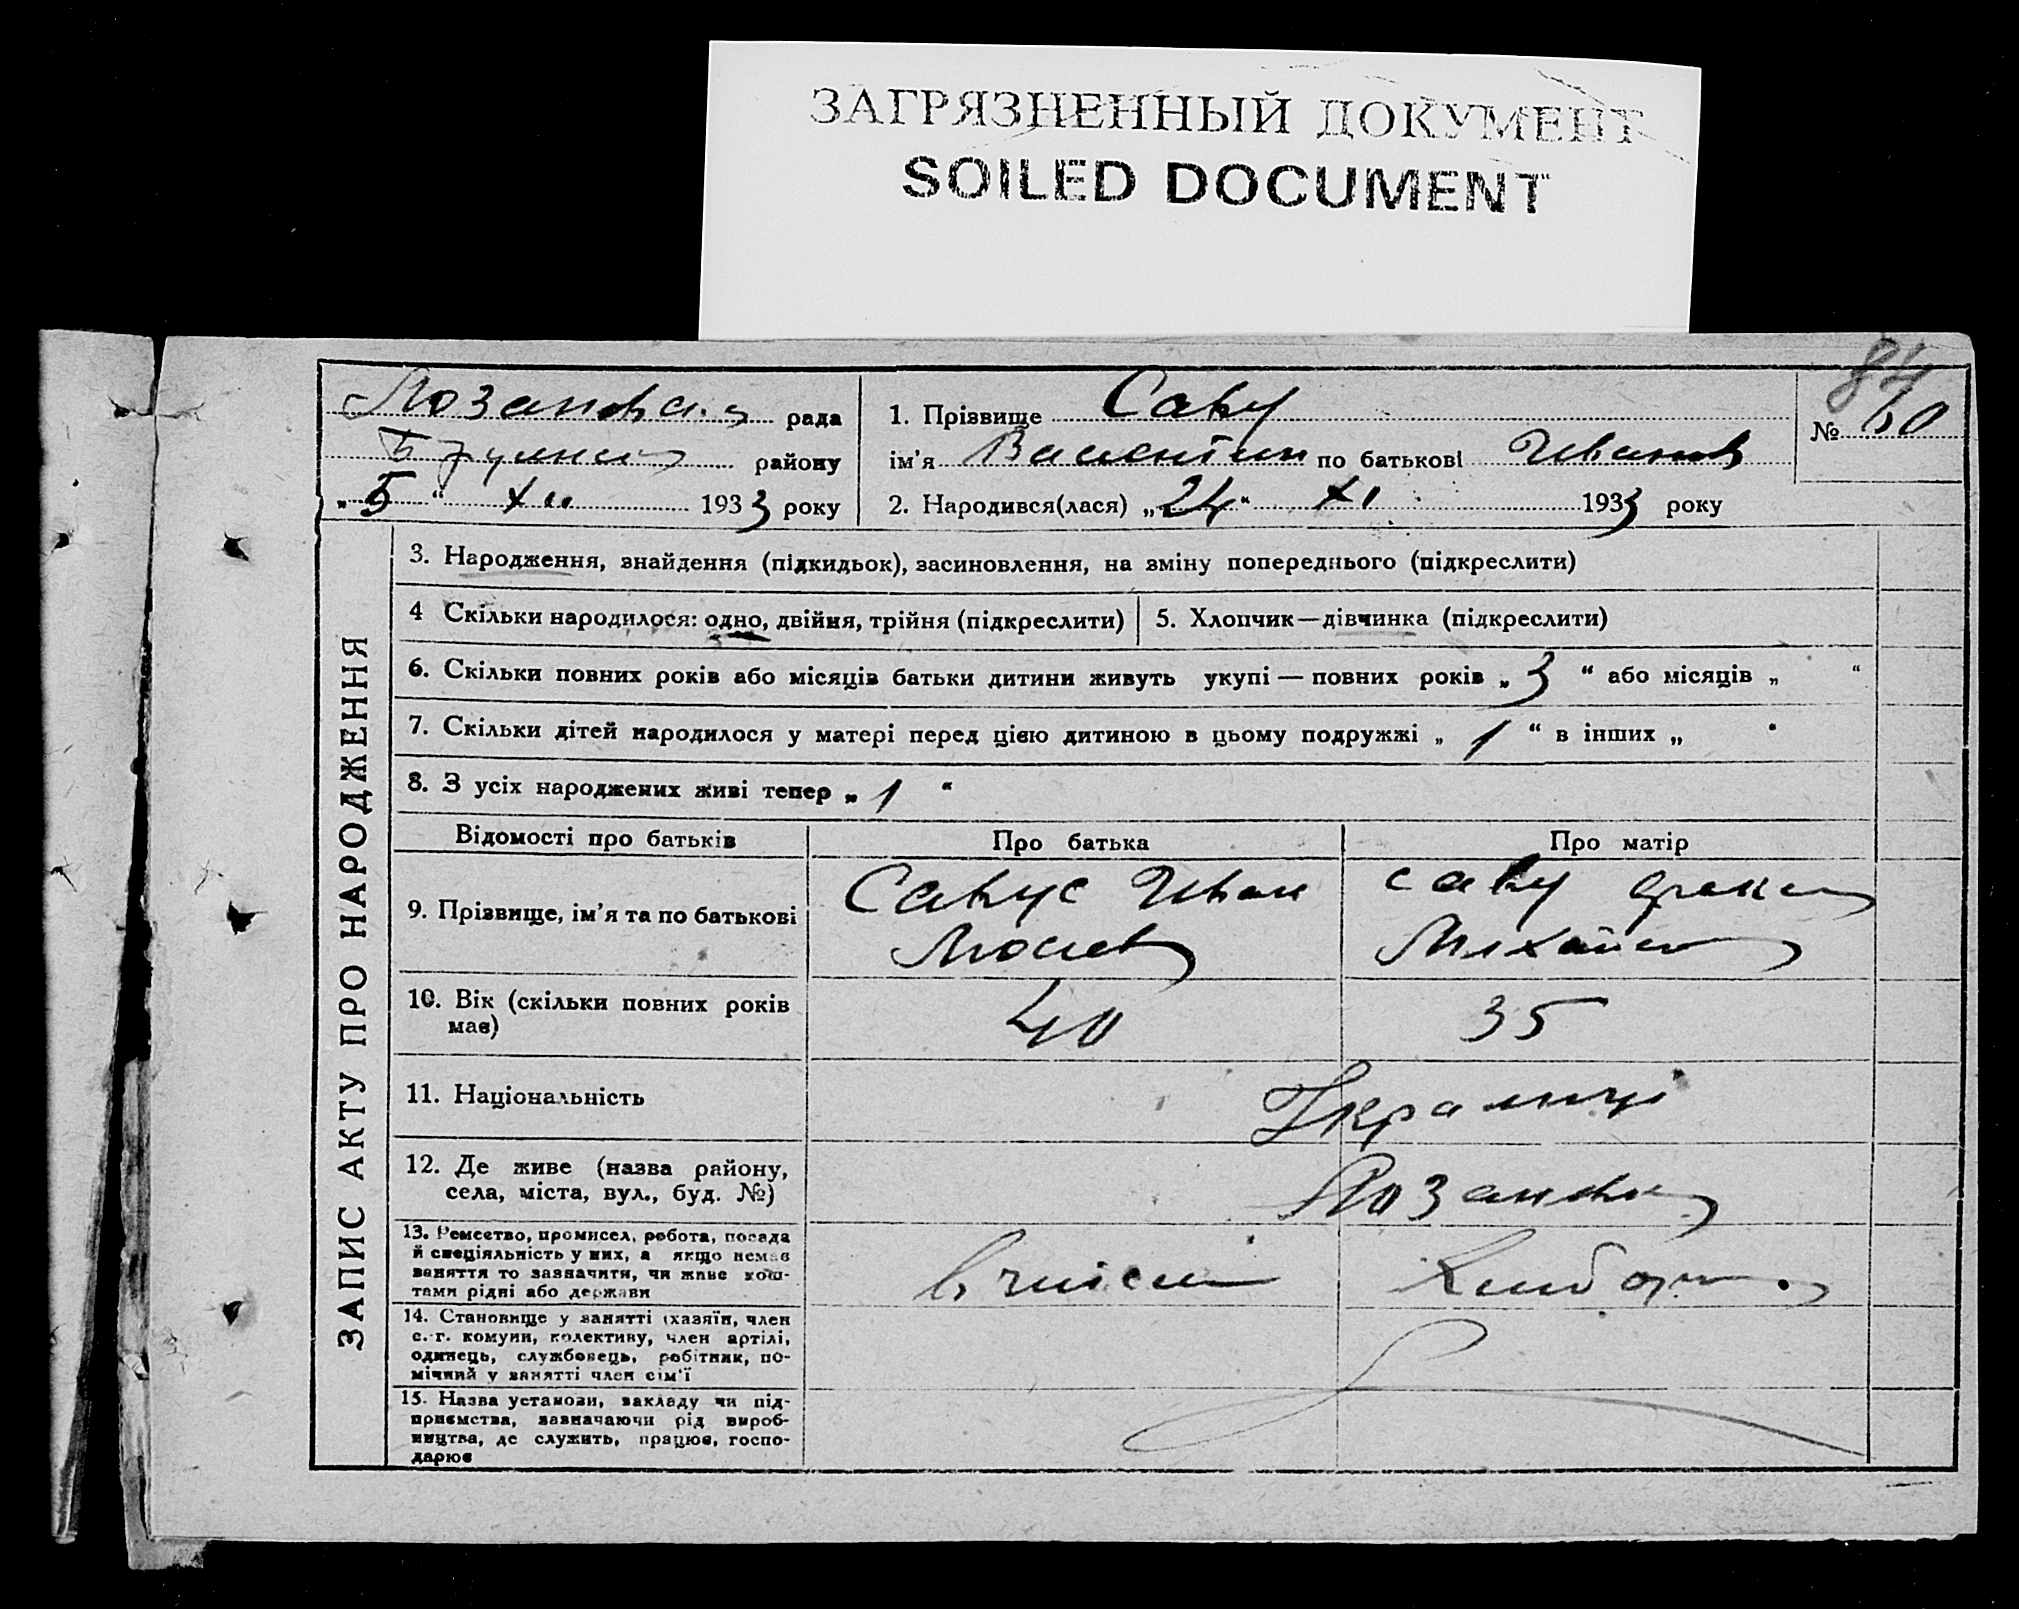 ЗАГРЯЗНЕННЫЙ ДОКУМЕНТ
SOILED DOCUMENT
84
рада
району
„5“ XII 1933 року
1. Прізвище Саву
ім'я Валентин по батькові Иванов
2. Народився(лася) „24“ XI 1933 року
№ 60
ЗАПИС АКТУ ПРО НАРОДЖЕННЯ
3. Народження, знайдення (підкидьок), засиновлення, на зміну попереднього (підкреслити)
4 Скільки народилося: одно, двійня, трійня (підкреслити)
5. Хлопчик—дівчинка (підкреслити)
6. Скільки повних років або місяців батьки дитини живуть укупі — повних років „3“ або місяців „ “
7. Скільки дітей народилося у матері перед цією дитиною в цьому подружжі „1“ в інших „ “
8. З усіх народжених живі тепер „1“
Відомості про батьків
Про батька
Про матір
9. Прізвище, ім'я та по батькові
Иван
саву
10. Вік (скільки повних років
має)
40
35
11. Національність
Українці
12. Де живе (назва району,
села, міста, вул., буд. №)
13. Ремество, промисел, робота, посада
й спеціяльність у них, а якщо немає
заняття то зазначити, чи живе кош-
тами рідні або держави
14. Становище у занятті (хазяїн, член
с.-г. комуни, колективу, член артілі,
одинець, службовець, робітник, по-
мічний у занятті член сім'ї
15. Назва установи, закладу чи під-
приємства, зазначаючи рід вироб-
ництва, де служить, працює, госпо-
дарює